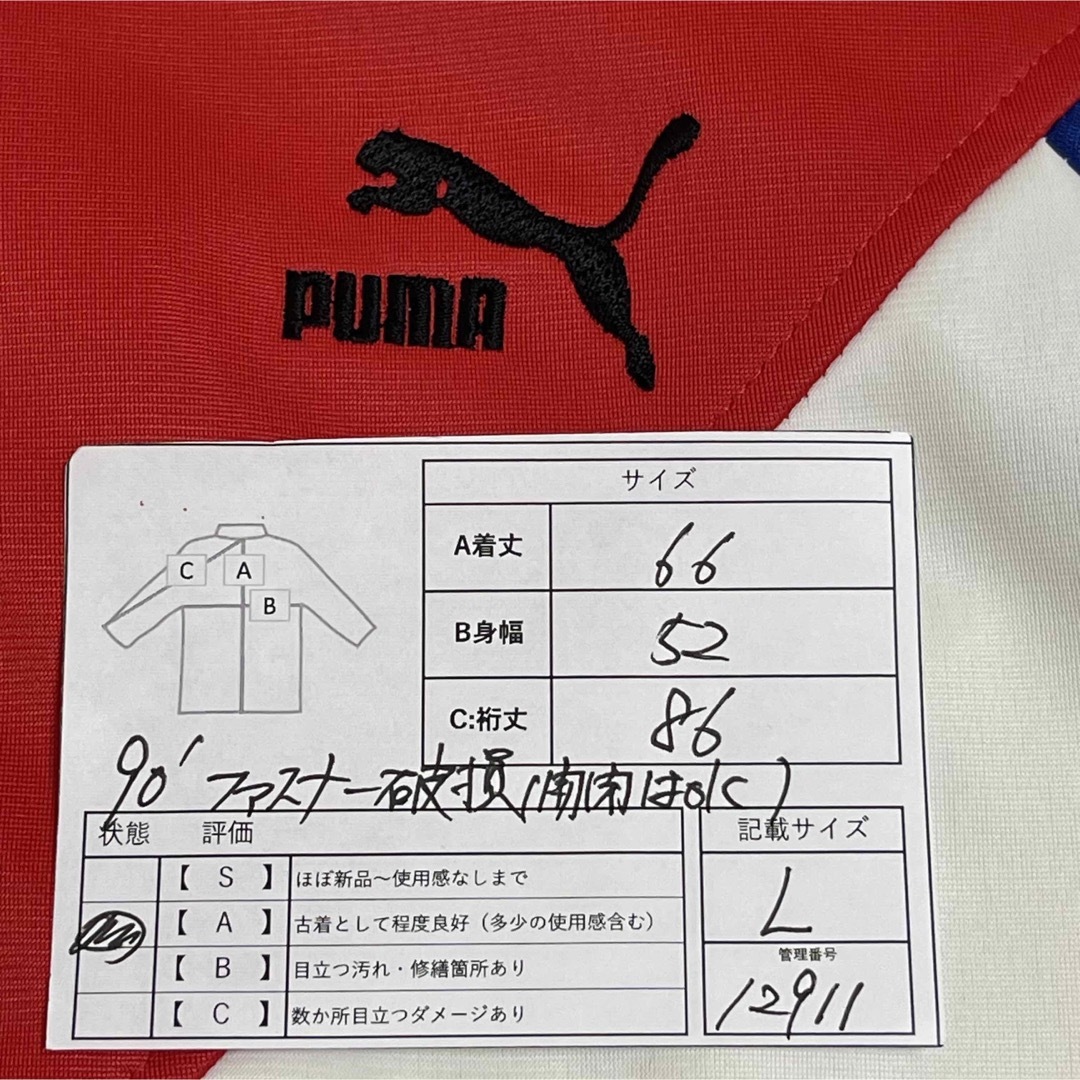 PUMA
サイズ
A着丈
66
B身幅
52
C:裄丈
86
C
A
B
90' ファスナー破損(開閉はok)
状態 評価
【 S 】 ほぼ新品～使用感なしまで
【 A 】 古着として程度良好（多少の使用感含む）
【 B 】 目立つ汚れ・修繕箇所あり
【 C 】 数か所目立つダメージあり
記載サイズ
L
管理番号
12911